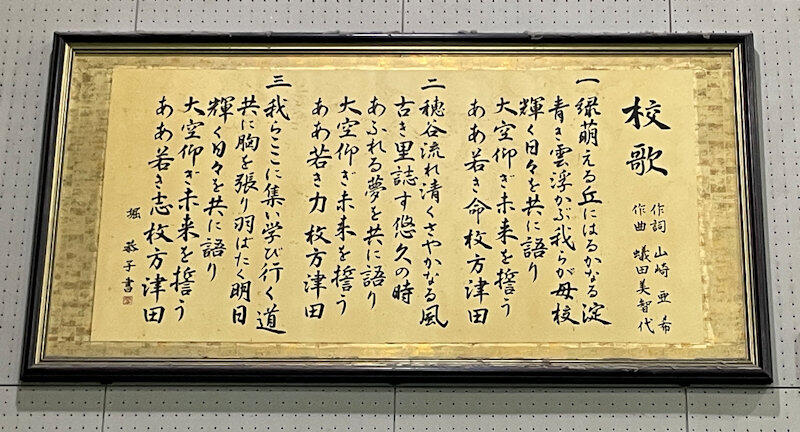 校歌
作詞 山崎亜希
作曲 蟻田美智代
一 緑萌える丘にはるかなる淀
青き雲浮かぶ我らが母校
輝く日々を共に語り
大空仰ぎ未来を誓う
ああ若き命枚方津田
二 穂谷流れ清くさやかなる風
古き里誌す悠久の時
あふれる夢を共に語り
大空仰ぎ未来を誓う
ああ若き力枚方津田
三 我らここに集い学び行く道
共に胸を張り羽ばたく明日
輝く日々を共に語り
大空仰ぎ未来を誓う
ああ若き志枚方津田
堀 恭子書